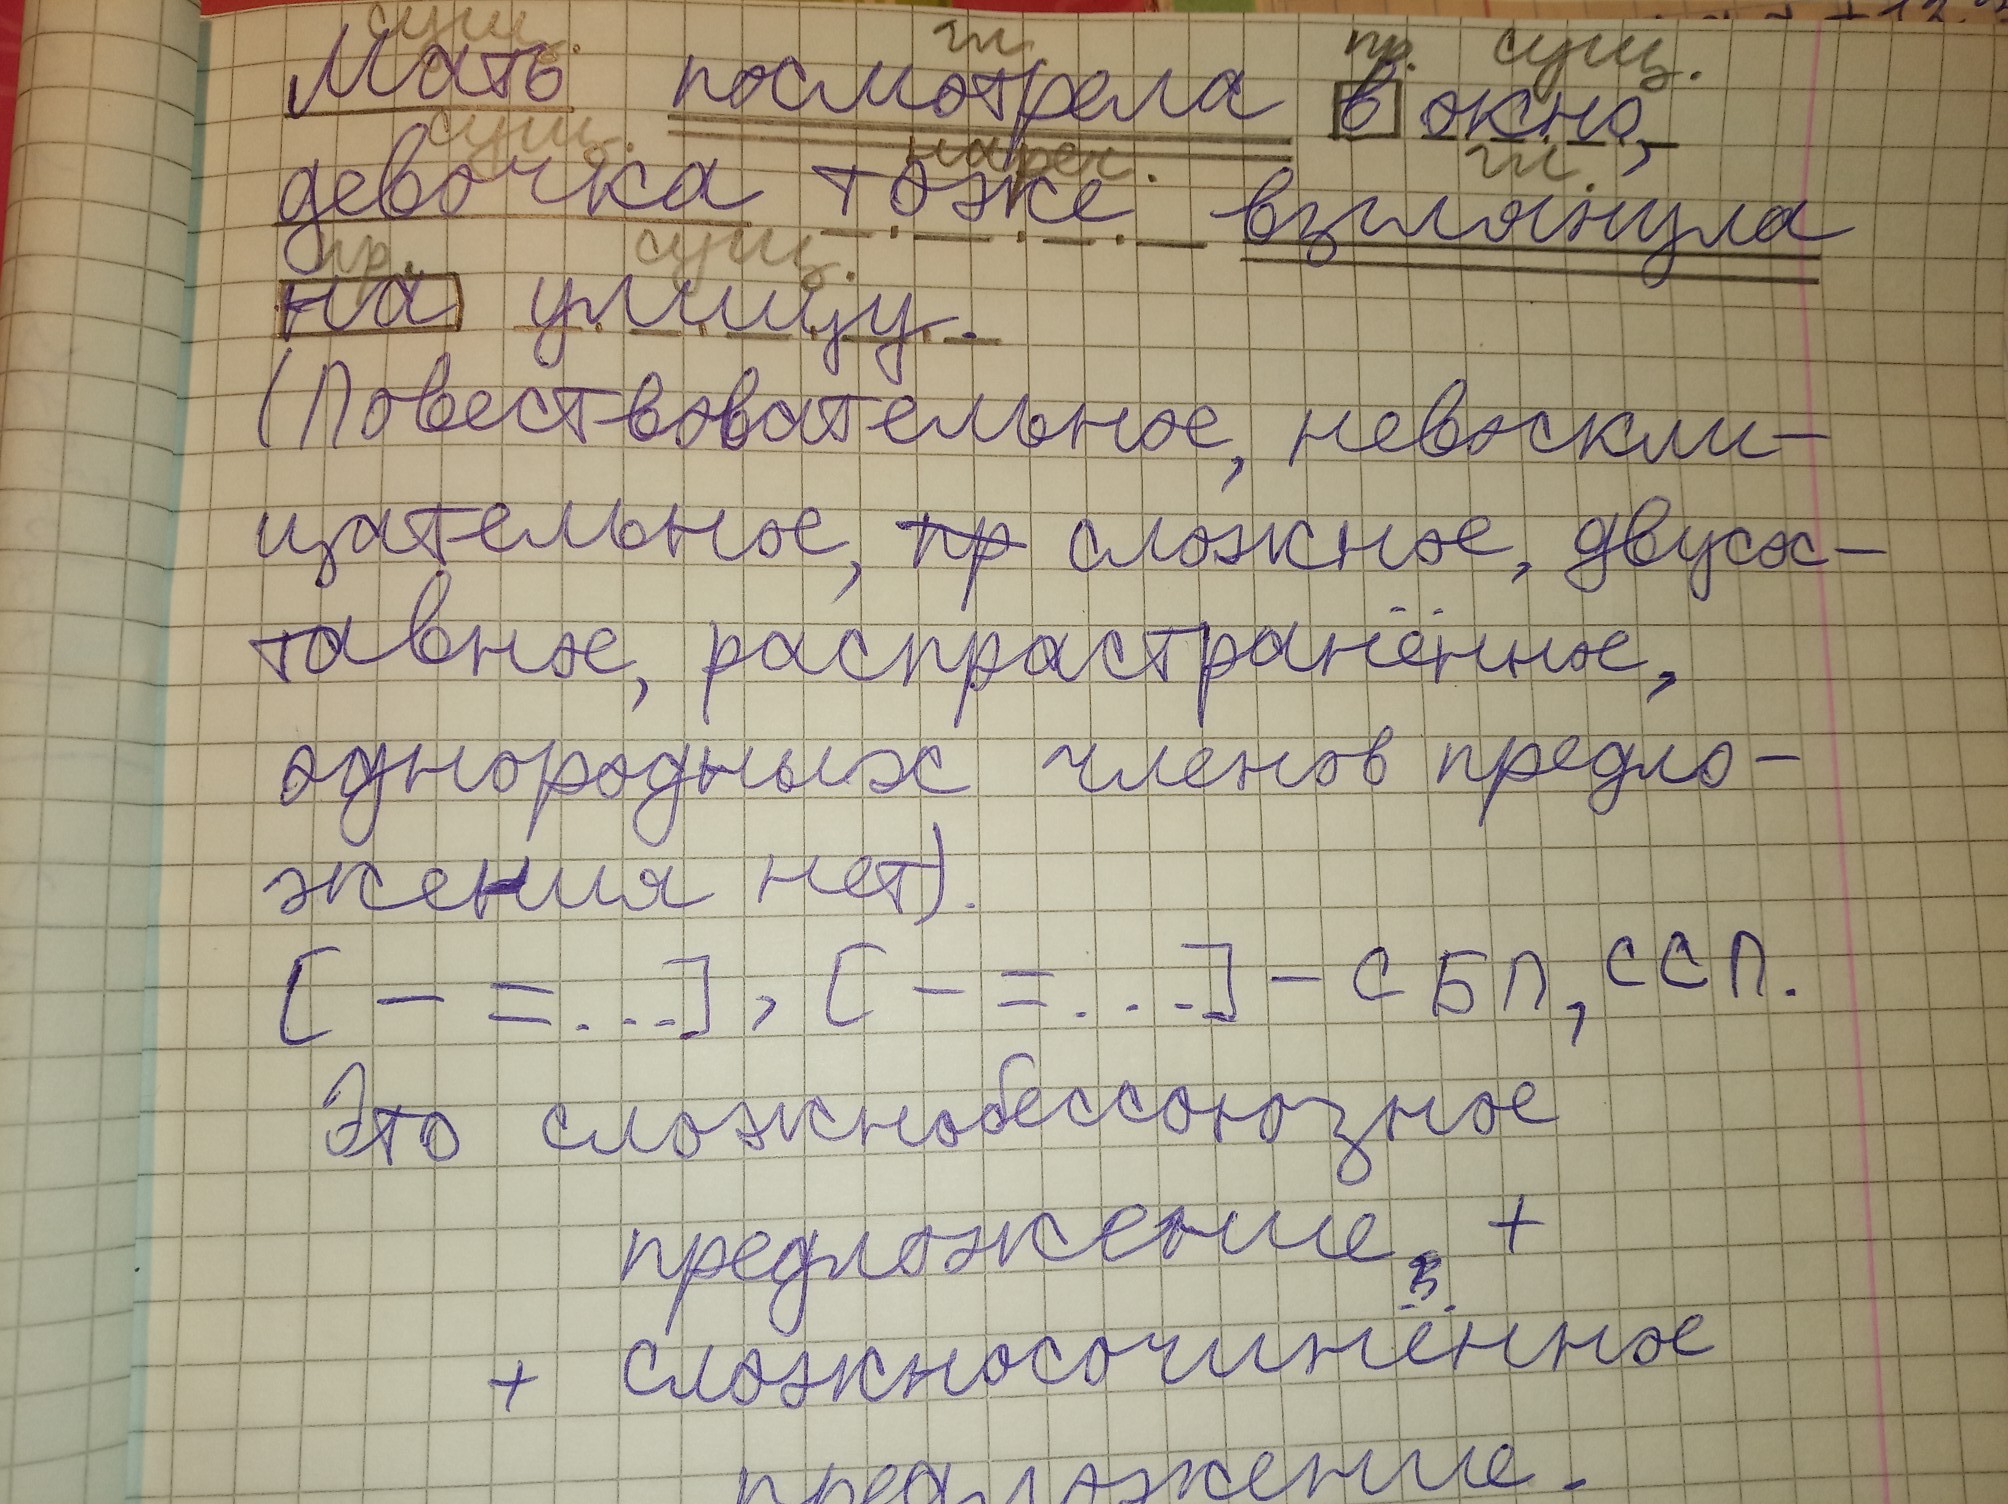 сущ. гл. пр. сущ.
Мать посмотрела в окно,
сущ. нареч. гл.
девочка тоже взглянула
пр. сущ.
на улицу.
(Повествовательное, невоскли-
цательное, пр сложное, двусос-
тавное, распрастранённое,
однородных членов предло-
жения нет).
[ – =...], [ – =...] – СБП, ССП.
Это сложнобессоюзное
предложение, +
+ сложносочинённое
предложение.